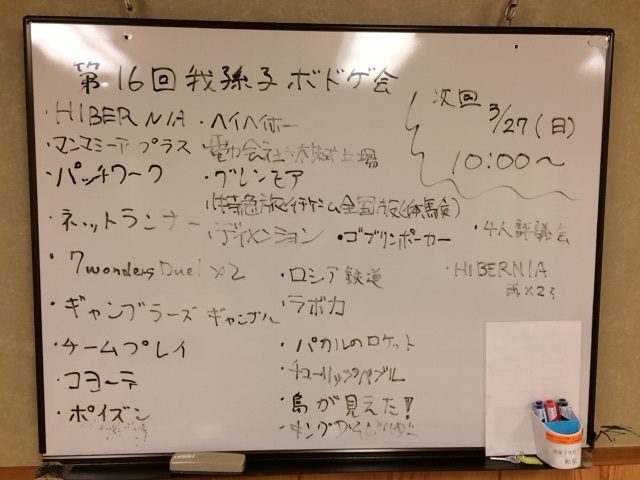 第16回 我孫子 ボドゲ会
次回
3/27(日)
10:00〜
・HIBERNIA
・ヘイヘイホー
・マンマミーア プラス
・電力会社:株式上場
・パッチワーク
・グレンモア
全国版(体験会)
・ネットランナー
・ディメンション
・ゴブリンポーカー
・4人評議会
・7 wonders Duel ×2
・ロシア鉄道
・HIBERNIA
・ギャンブラーズ ギャンブル
・ラボカ
・チームプレイ
・パカルのロケット
・コヨーテ
・チューリップバブル
・ポイズン
・島が見えた!